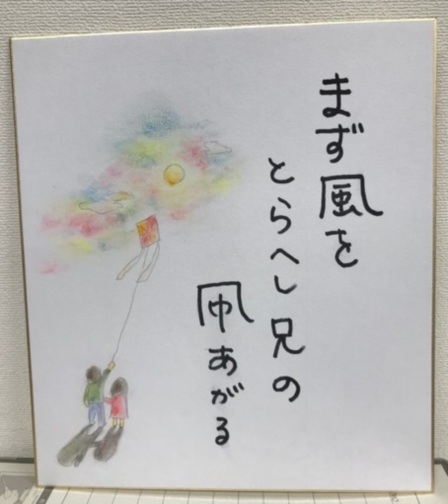 まず風を
とらへし兄の
凧あがる